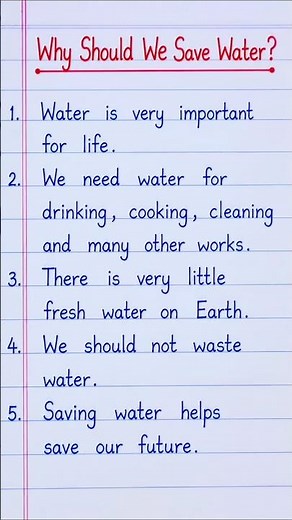 Why Should We Save Water?
1. Water is very important
for life.
2. We need water for
drinking, cooking, cleaning
and many other works.
3. There is very little
fresh water on Earth.
4. We should not waste
water.
5. Saving water helps
save our future.